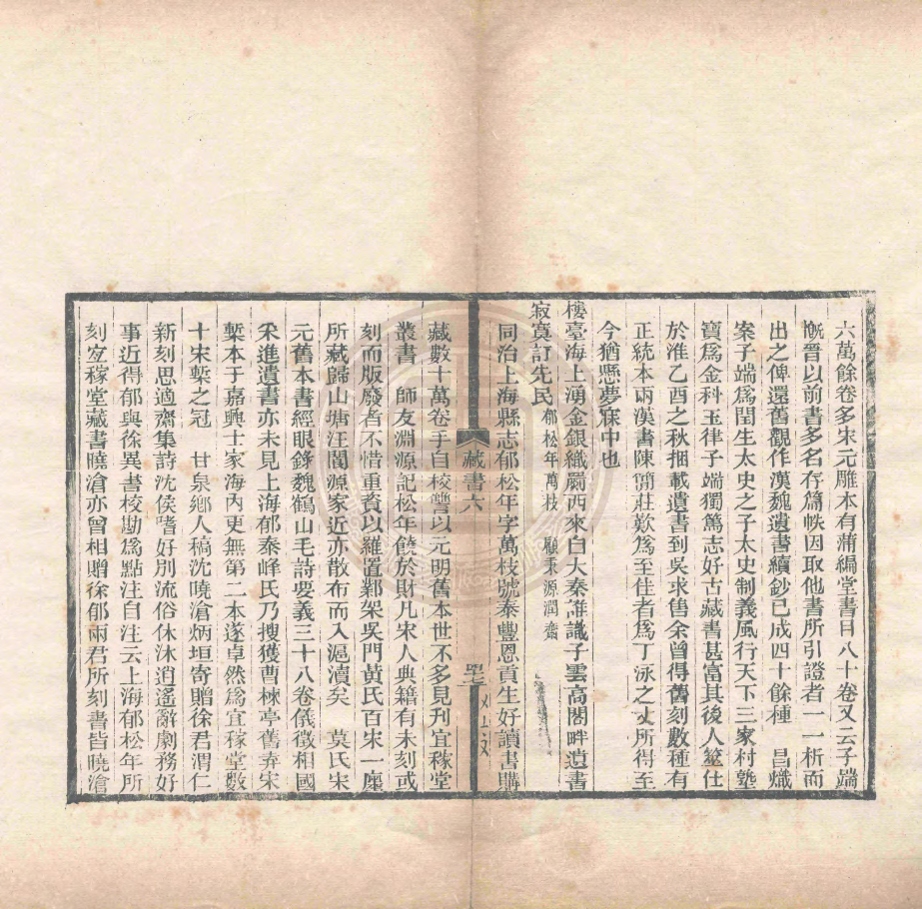 六萬餘卷多宋元雕本有蒲編堂書目八十卷又云子端
慨晉以前書多名存篇帙因取他書所引證者一一析而
出之俾還舊觀作漢魏遺書續鈔已成四十餘種　昌熾
案子端爲閏生太史之子太史制義風行天下三家村塾
寶爲金科玉律子端獨篤志好古藏書甚富其後人筮仕
於淮乙酉之秋捆載遺書到吳求售余曾得舊刻數種有
正統本兩漢書陳簡莊歎爲至佳者爲丁泳之丈所得至
今猶懸夢寐中也
樓臺海上湧金銀織屩西來白大秦誰識子雲高閣畔遺書
寂寞訂先民 郁松年萬枝　顧秉源潤齋
同治上海縣志郁松年字萬枝號泰豐恩貢生好讀書購
藏書六
藏數十萬卷手自校讐以元明舊本世不多見刊宜稼堂
叢書　師友淵源記松年饒於財凡宋人典籍有未刻或
刻而版廢者不惜重資以羅置鄴架吳門黃氏百宋一廛
所藏歸山塘汪閬源家近亦散布而入滬瀆矣　莫氏宋
元舊本書經眼錄魏鶴山毛詩要義三十八卷儀徵相國
采進遺書亦未見上海郁泰峰氏乃搜獲曹楝亭舊弆宋
槧本于嘉興士家海內更無第二本遂卓然爲宜稼堂數
十宋槧之冠　甘泉鄉人稿沈曉滄炳垣寄贈徐君渭仁
新刻思適齋集詩沈侯嗜好別流俗休沐逍遙辭劇務好
事近得郁與徐異書校勘爲點注自注云上海郁松年所
刻宜稼堂藏書曉滄亦曾相贈徐郁兩君所刻書皆曉滄